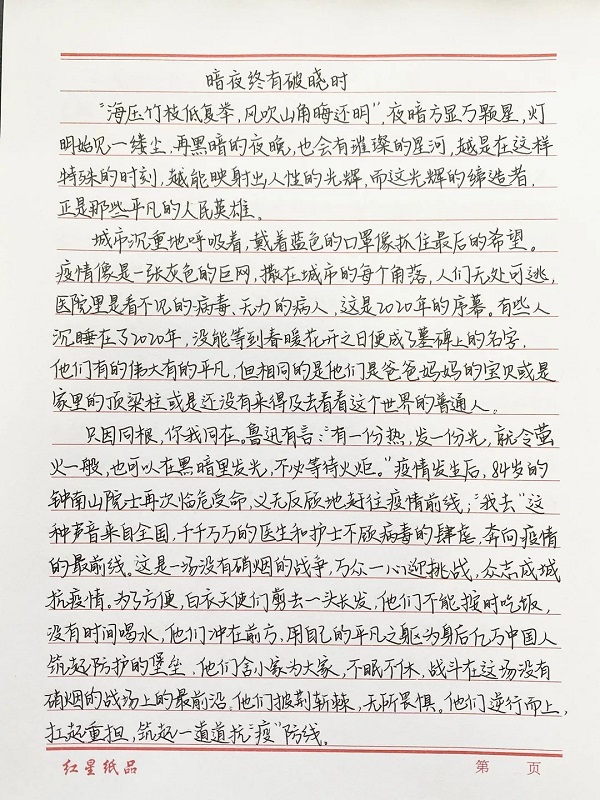 暗夜终有破晓时
"海压竹枝低复举,风吹山角晦还明",夜暗方显万颗星,灯
明始见一缕尘.再黑暗的夜晚,也会有璀璨的星河,越是在这样
特殊的时刻,越能映射出人性的光辉,而这光辉的缔造者,
正是那些平凡的人民英雄。
城市沉重地呼吸着,戴着蓝色的口罩像抓住最后的希望。
疫情像是一张灰色的巨网,撒在城市的每个角落,人们无处可逃,
医院里是看不见的病毒、无力的病人,这是2020年的序幕。有些人
沉睡在了2020年,没能等到春暖花开之日便成了墓碑上的名字,
他们有的伟大有的平凡,但相同的是他们是爸爸妈妈的宝贝或是
家里的顶梁柱或是还没有来得及去看看这个世界的普通人。
只因同根,你我同在。鲁迅有言:"有一份热,发一份光,就令萤
火一般,也可以在黑暗里发光,不必等待火炬。"疫情发生后,84岁的
钟南山院士再次临危受命,义无反顾地赶往疫情前线,"我去"这
种声音来自全国,千千万万的医生和护士不顾病毒的肆虐,奔向疫情
的最前线。这是一场没有硝烟的战争,万众一心迎挑战,众志成城
抗疫情。为了方便,白衣天使们剪去一头长发,他们不能按时吃饭,
没有时间喝水,他们冲在前方,用自己的平凡之躯为身后亿万中国人
筑起防护的堡垒.他们舍小家为大家,不眠不休,战斗在这场没有
硝烟的战场上的最前沿.他们披荆斩棘,无所畏惧。他们逆行而上,
扛起重担,筑起一道道抗"疫"防线。
红星纸品 第 页